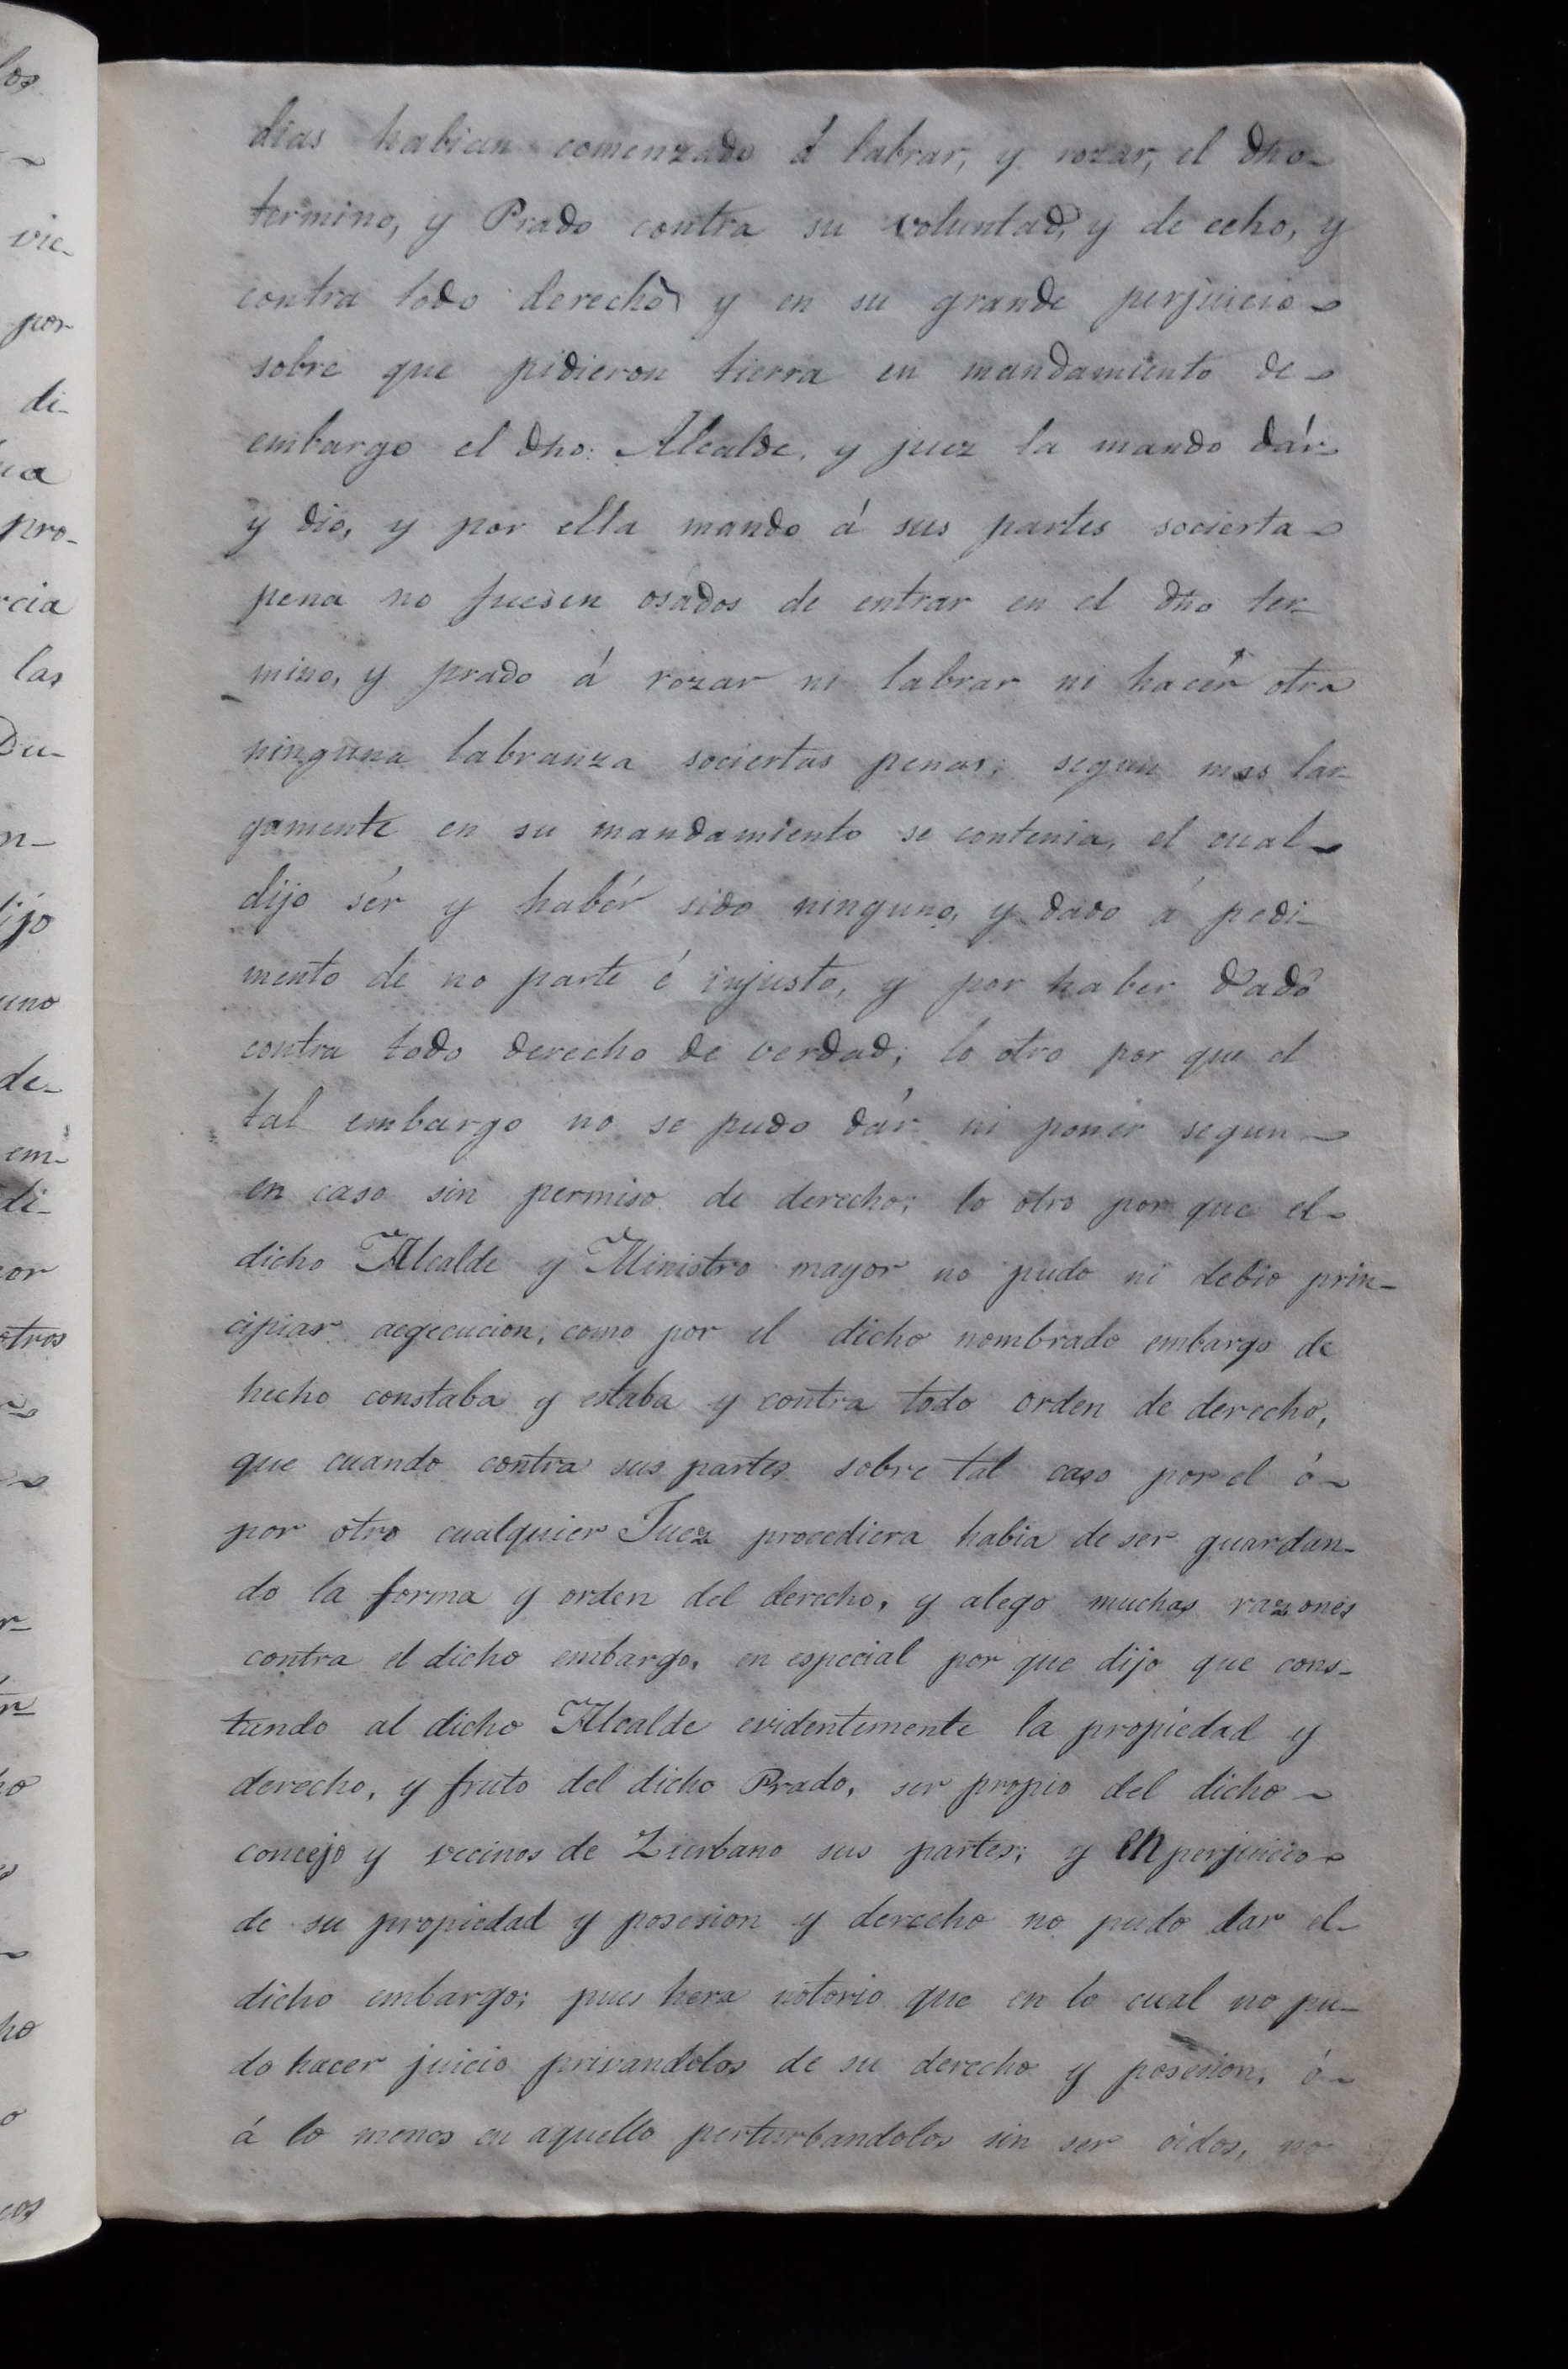 dias habian comenzado á labrar, y rozar, el dho
termino, y Prado contra su voluntad, y de echo, y
contra todo derecho y en su grande perjuicio
sobre que pidieron tierra en mandamiento de
embargo el dho: Alcalde, y juez la mando dár
y dio, y por ella mando á sus partes socierta
pena no fuesen osados de entrar en el dho ter-
mino, y prado á rozar ni labrar ni hacér otra
ninguna labranza sociertas penas; segun mas lar-
gamente en su mandamiento se contenia, el cual
dijo sér y habér sido ninguno, y dado á pedi-
mento de no parte é injusto, y por haber dado
contra todo derecho de verdad; lo otro por que el
tal embargo no se pudo dár ni poner segun
en caso sin permiso de derecho; lo otro por que el
dicho Alcalde y Ministro mayor no pudo ni debio prin-
cipiar aegecucion, como por el dicho nombrado embargo de
hecho constaba y estaba y contra todo orden de derecho,
que cuando contra sus partes sobre tal caso por el ó
por otro cualquier Juez procediera habia de ser guardan-
do la forma y orden del derecho, y alego muchas razones
contra el dicho embargo, en especial por que dijo que cons-
tando al dicho Alcalde evidentemente la propiedad y
derecho, y fruto del dicho Prado, ser propio del dicho
concejo y vecinos de Zierbano sus partes; y en perjuicio
de su propiedad y posesion y derecho no pudo dar el
dicho embargo; pues hera notorio que en lo cual no pu-
do hacer juicio privandolos de su derecho y posesion, ó
á lo menos en aquello perturbandolos sin ser oidos, no
los
vie-
por
di-
pro-
las
Du-
de-
em-
di-
otros